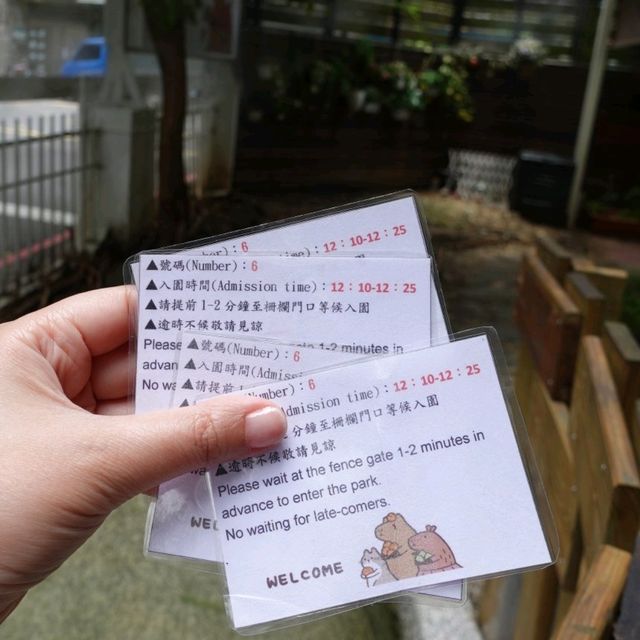 ：6
time)：12：10-12：25
▲號碼(Number)：6
▲入園時間(Admission time)：12：10-12：25
▲請提前1-2分鐘至柵欄門口等候入園
▲逾時不候敬請見諒
Please
1-2 minutes in
advan
No wa
▲號碼(Number)：6
▲入園時間(Admiss
▲請提前1
WEL
(Number)：6
dmission time)：12：10-12：25
2分鐘至柵欄門口等候入園
▲逾時不候敬請見諒
Please wait at the fence gate 1-2 minutes in
advance to enter the park.
No waiting for late-comers.
WELCOME